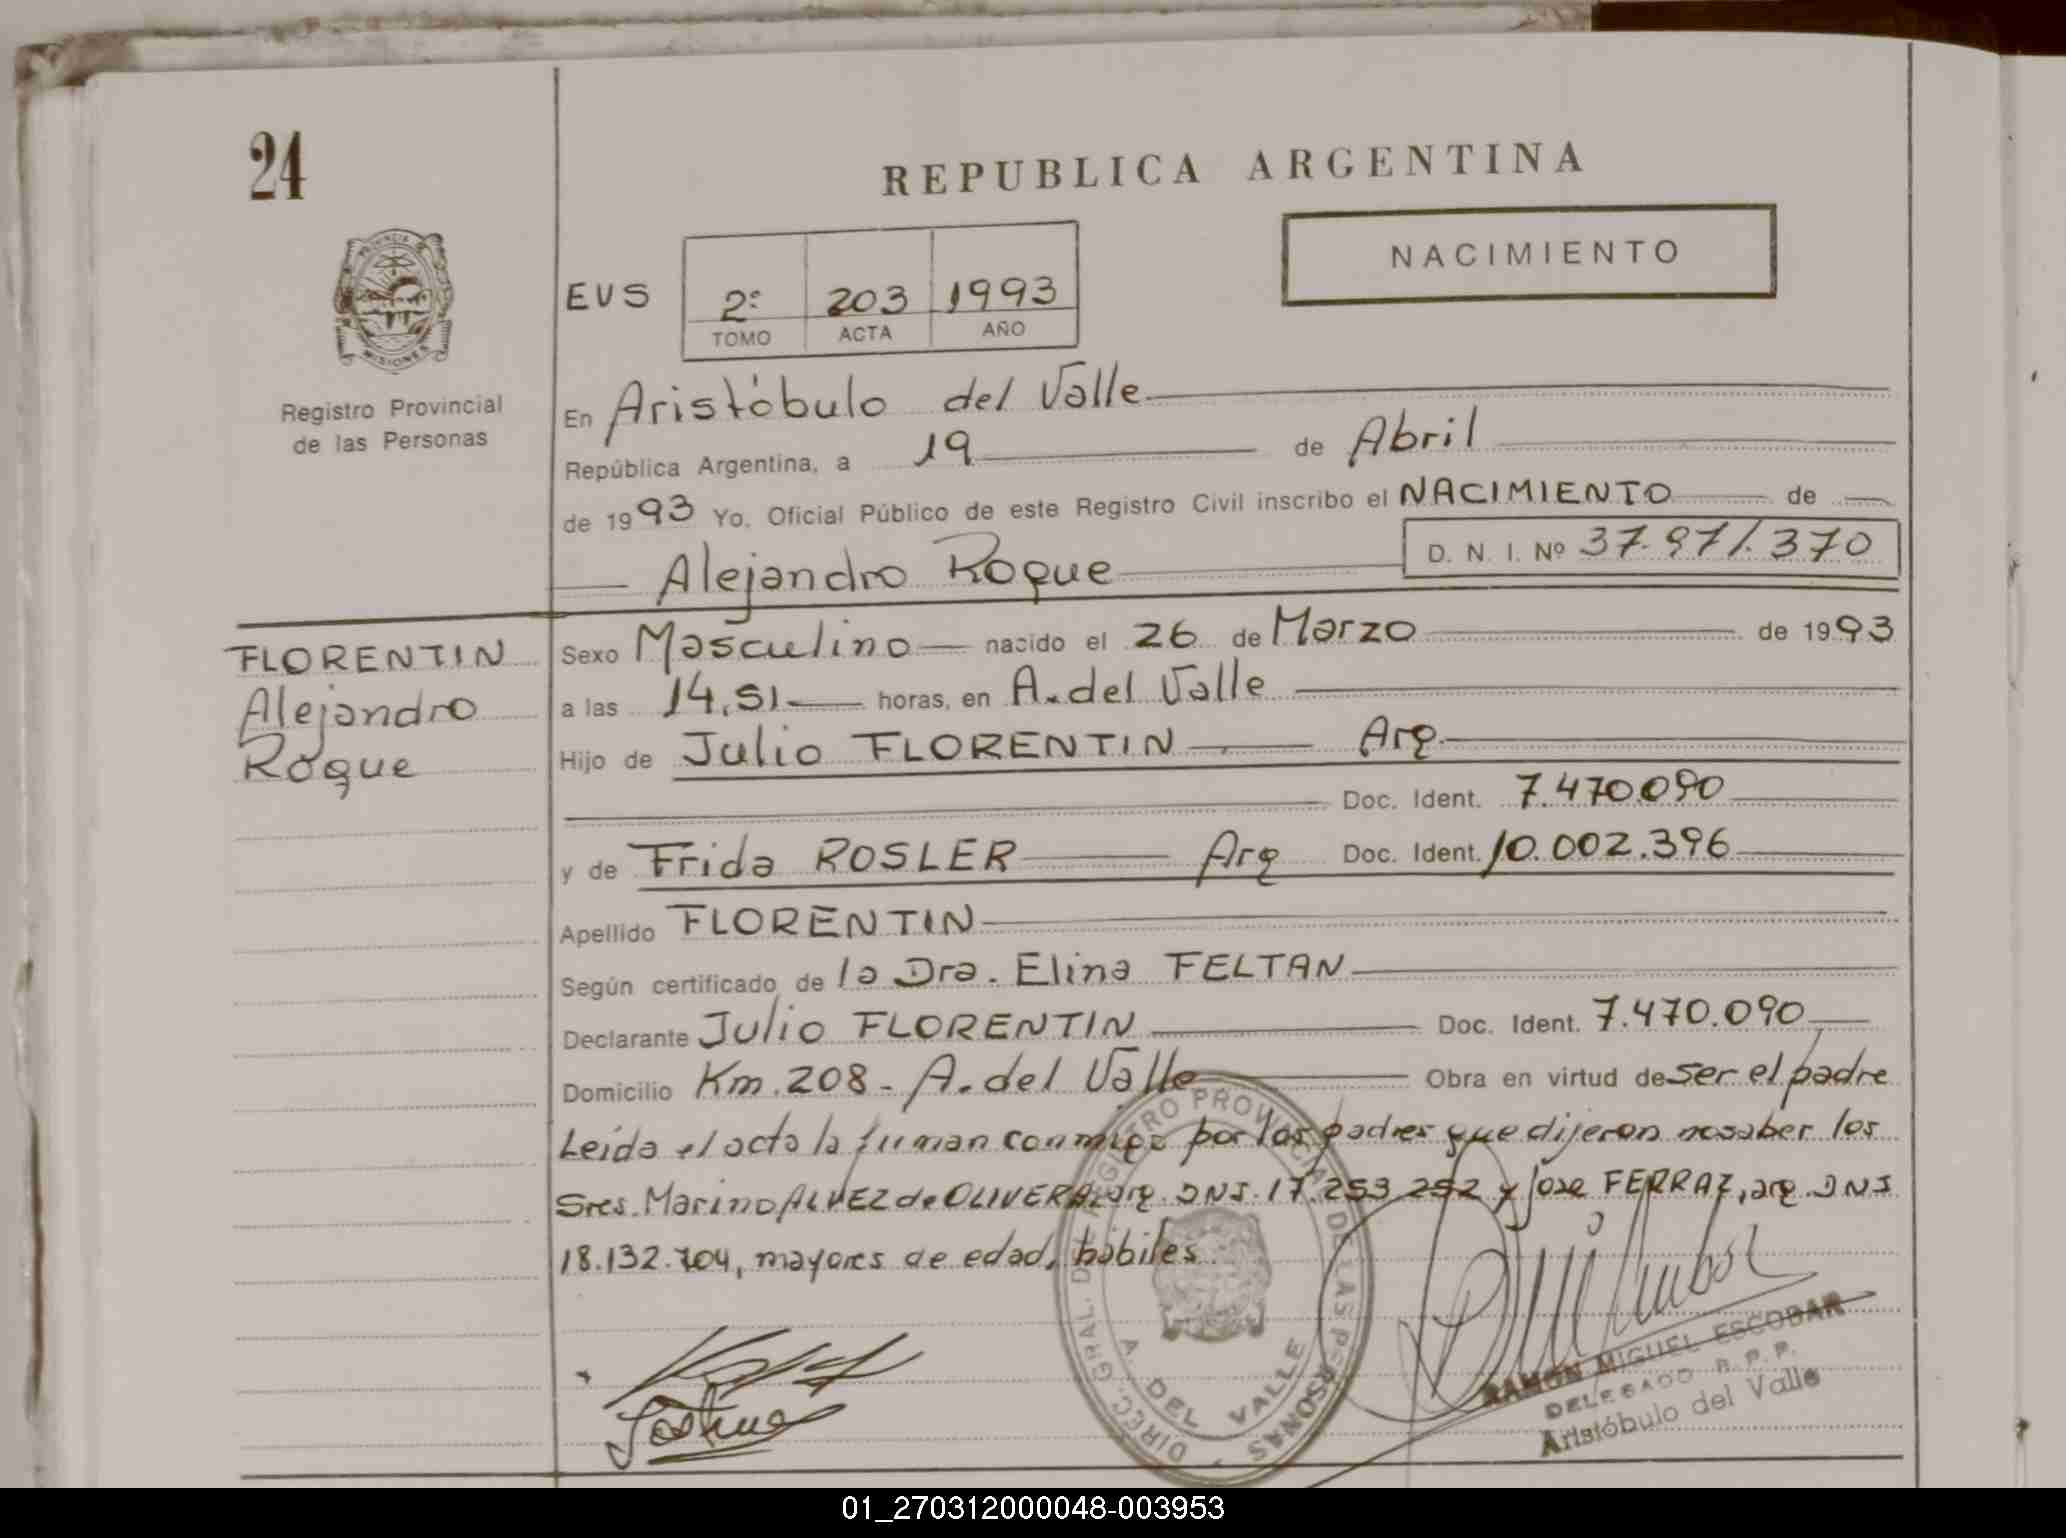 24
REPUBLICA ARGENTINA
PROVINCIA DE
MISIONES
NACIMIENTO
EUS 2º 203 1993
TOMO ACTA AÑO
Registro Provincial
de las Personas
En Aristóbulo del Valle
República Argentina, a 19 de Abril
de 1993 Yo, Oficial Público de este Registro Civil inscribo el NACIMIENTO de
Alejandro Roque D. N. I. Nº 37.971.370
FLORENTIN
Alejandro
Roque
Sexo Masculino nacido el 26 de Marzo de 1993
a las 14,51 horas, en A. del Valle
Hijo de Julio FLORENTIN Arg.
Doc. Ident. 7.470.090
y de Frida ROSLER Arg Doc. Ident. 10.002.396
Apellido FLORENTIN
Según certificado de la Dra. Elina FELTAN
Declarante Julio FLORENTIN Doc. Ident. 7.470.090
Domicilio Km. 208 - A. del Valle Obra en virtud de ser el padre
Leída el acta la firman conmigo por los padres que dijeron no saber los
Sres. Marino ALVEZ de OLIVERA, arg. DNI. 17.253.252 y Jose FERRAZ, arg. DNI
18.132.704, mayores de edad, hábiles.
DIREC. GRAL. DEL REGISTRO PROVINCIAL DE LAS PERSONAS
A. DEL VALLE
RAMON MIGUEL ESCOBAR
DELEGADO R. P. P.
Aristóbulo del Valle
01_270312000048-003953